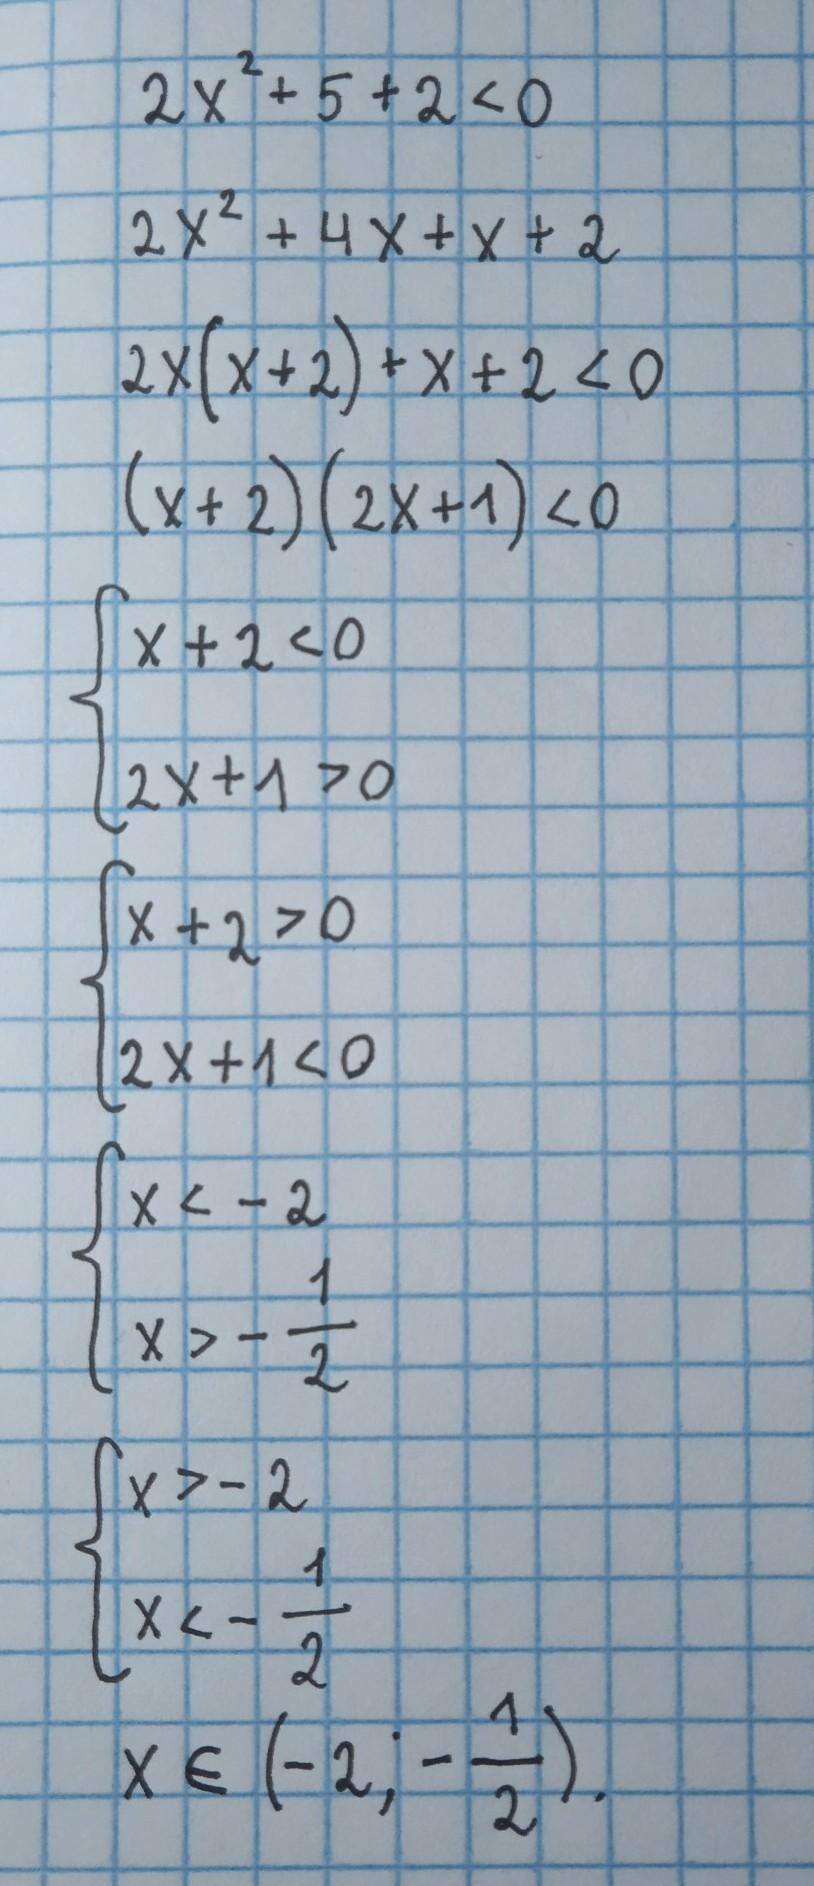 2x² + 5 + 2 < 0
2x² + 4x + x + 2
2x(x + 2) + x + 2 < 0
(x + 2)(2x + 1) < 0
{ x + 2 < 0
2x + 1 > 0
{ x + 2 > 0
2x + 1 < 0
{ x < - 2
x > - 1/2
{ x > - 2
x < - 1/2
x ∈ (-2; - 1/2).